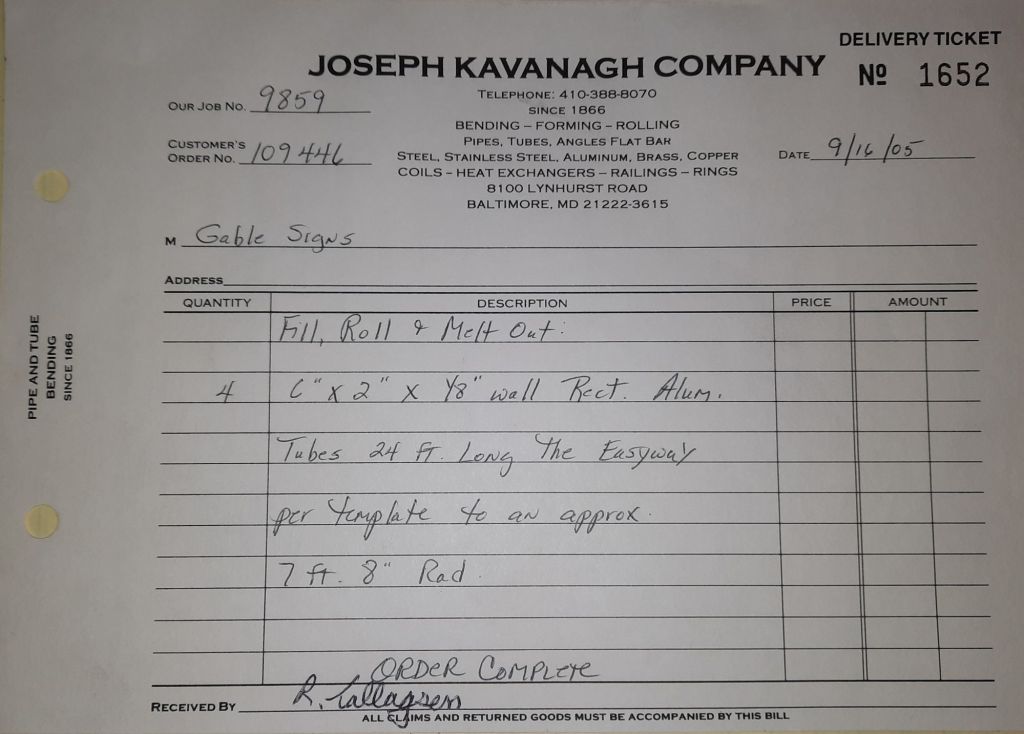 DELIVERY TICKET
JOSEPH KAVANAGH COMPANY
Nº 1652
OUR JOB NO. 9859
TELEPHONE: 410-388-8070
SINCE 1866
BENDING – FORMING – ROLLING
CUSTOMER'S
ORDER NO. 109446
PIPES, TUBES, ANGLES FLAT BAR
STEEL, STAINLESS STEEL, ALUMINUM, BRASS, COPPER
DATE 9/16/05
COILS – HEAT EXCHANGERS – RAILINGS – RINGS
8100 LYNHURST ROAD
BALTIMORE, MD 21222-3615
M Gable Signs
ADDRESS
QUANTITY DESCRIPTION PRICE AMOUNT
Fill, Roll & Melt Out:
4 6" x 2" x 1/8" wall Rect. Alum.
Tubes 24 ft. Long The Easyway
per template to an approx.
7 ft. 8" Rad.
ORDER COMPLETE
RECEIVED BY R.
ALL CLAIMS AND RETURNED GOODS MUST BE ACCOMPANIED BY THIS BILL
PIPE AND TUBE
BENDING
SINCE 1866